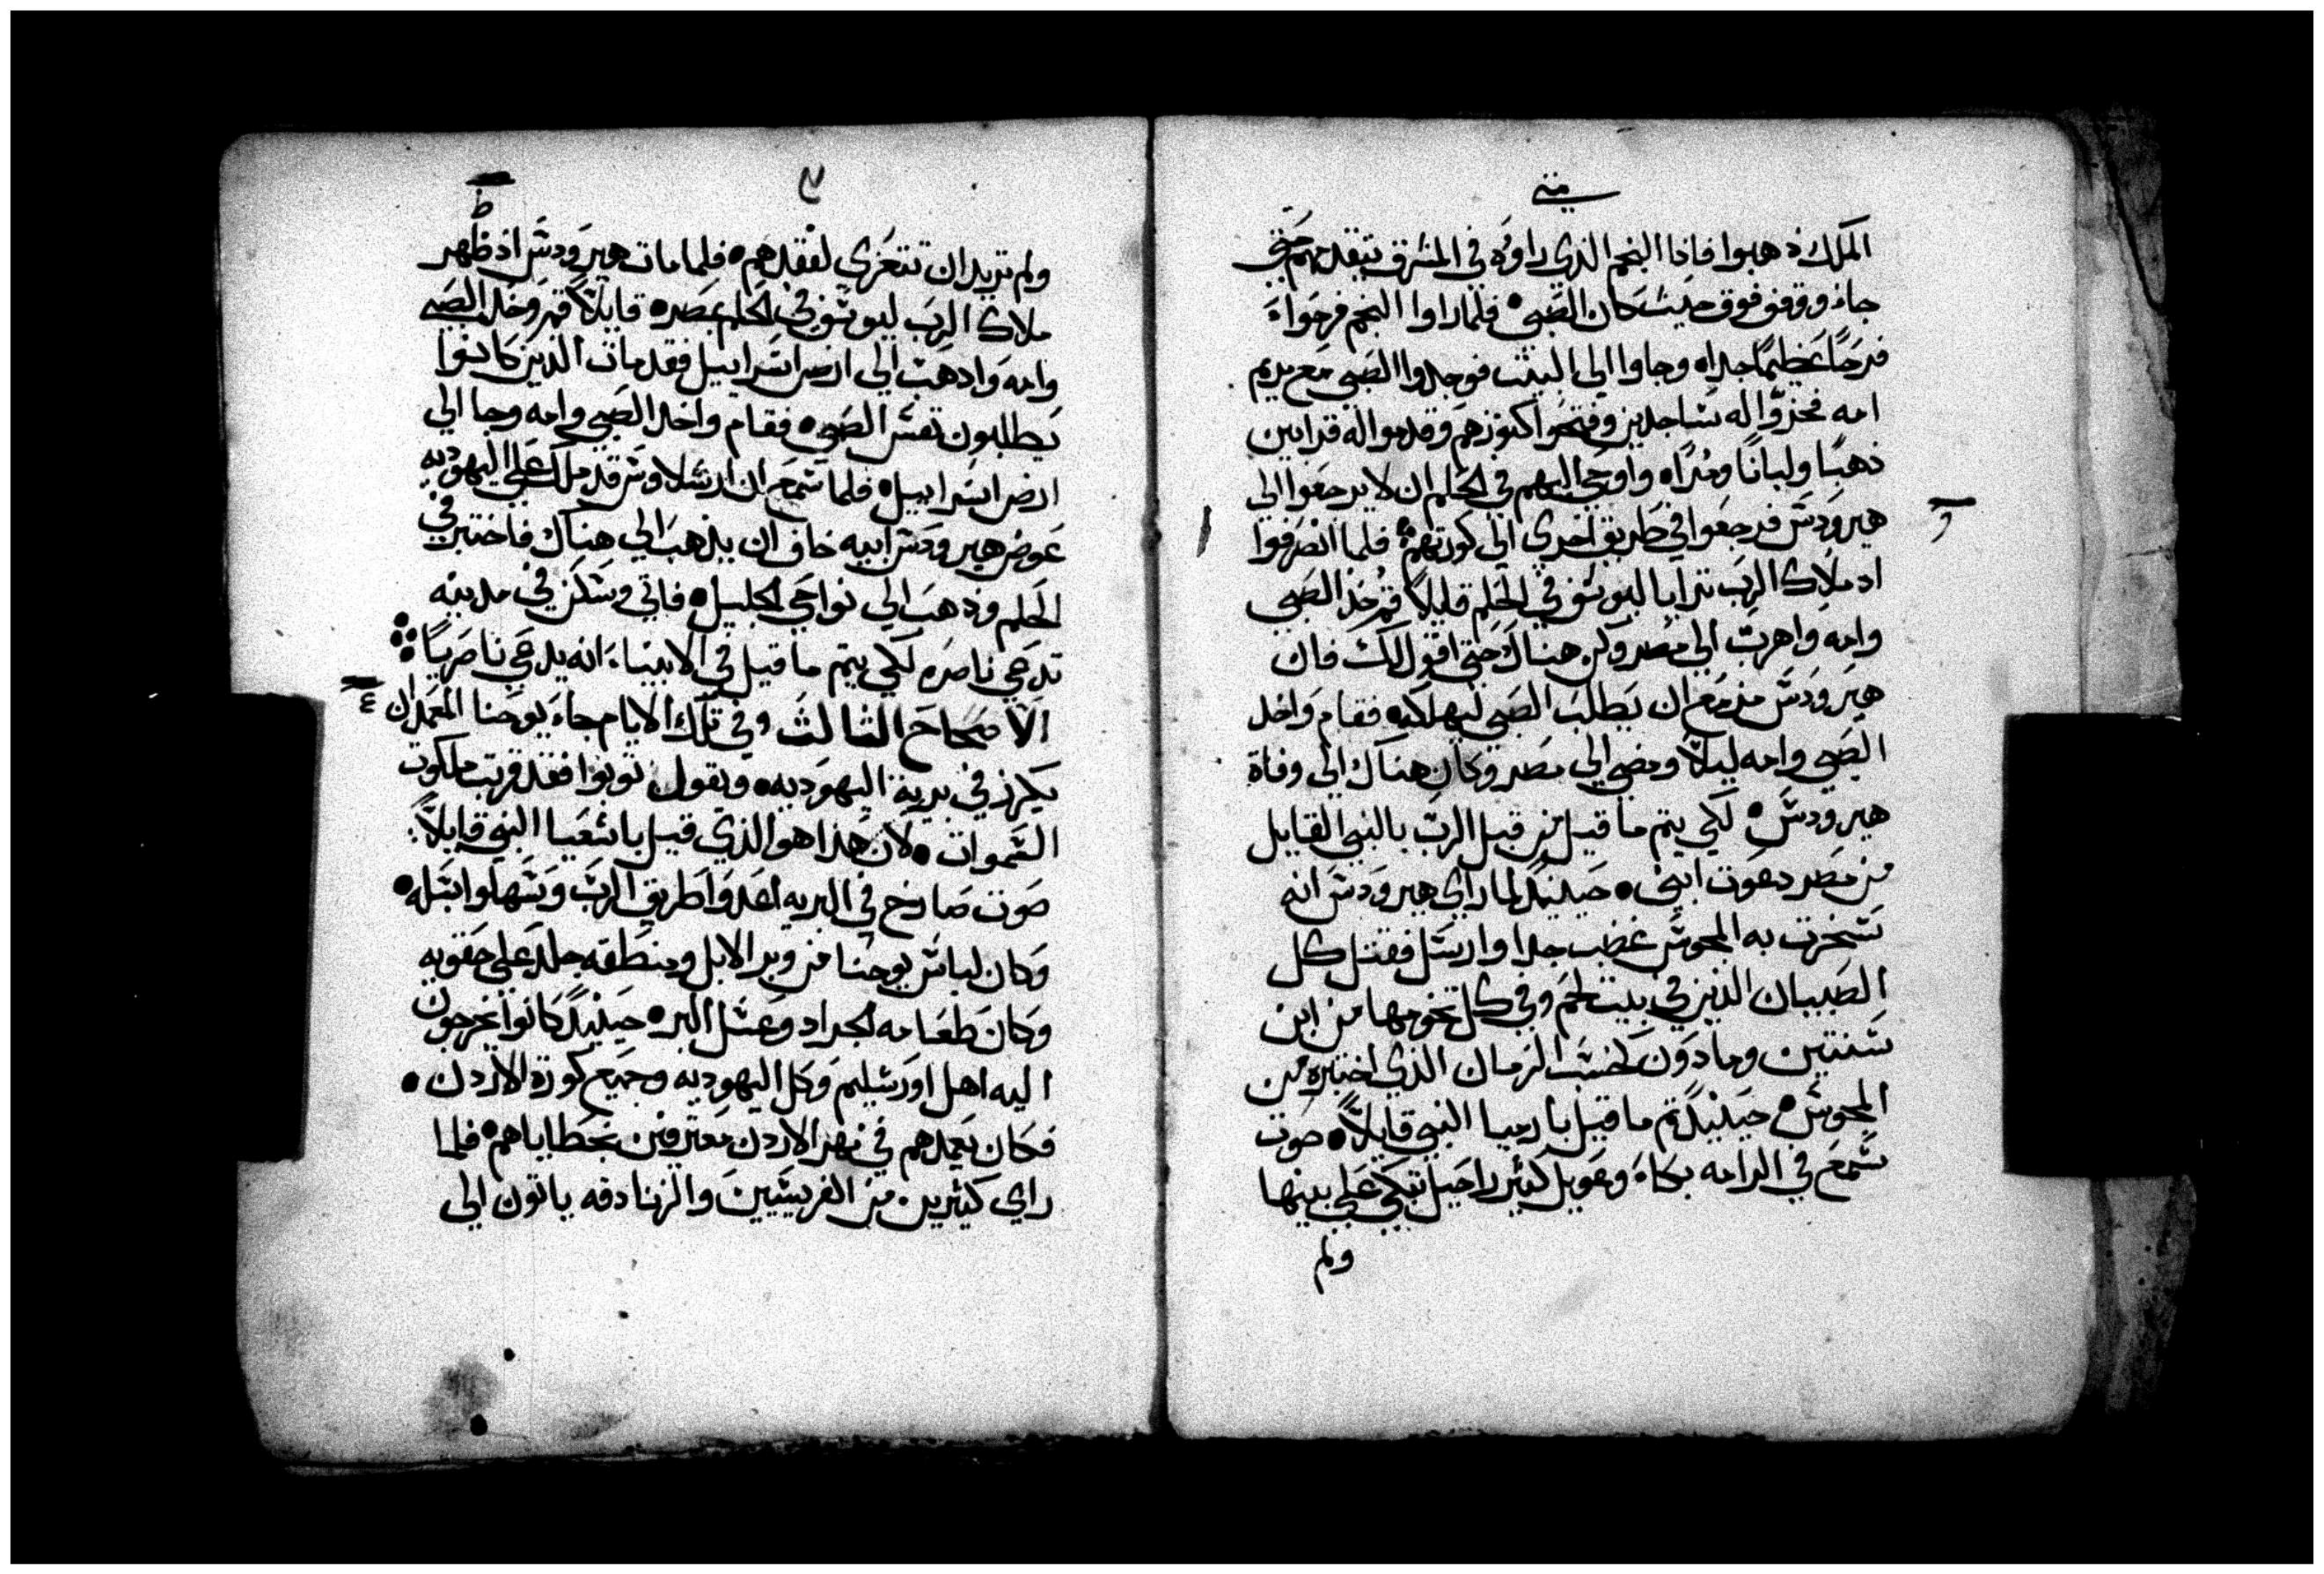 متي
الملك ذهبوا فاذا النجم الذي راوه في المشرق يتقدمهم حتي
جاء ووقف فوق حيث كان الصبي فلما راوا النجم فرحوا
فرحًا عظيمًا جدا وجاوا الي البيت فوجدوا الصبي مع مريم
امه فخروا له ساجدين وفتحوا كنوزهم وقدموا له قرابين
ذهبًا ولبانًا ومرًا واوحي اليهم في الحلم ان لا يرجعوا الي
هيرودس فرجعوا في طريق اخري الي كورتهم فلما انصرفوا
و
اذ ملاك الرب ترايا ليوسف في الحلم قايلاً قم خذ الصبي
وامه واهرب الي مصر وكن هناك حتي اقول لك فان
هيرودس مزمع ان يطلب الصبي ليهلكه فقام واخد
الصبي وامه ليلاً ومضي الي مصر وكان هناك الي وفاة
هيرودس لكي يتم ما قيل من قبل الرب بالنبي القايل
من مصر دعوت ابني حينيدٍ لما راي هيرودس انه
سخرت به المجوس غضب جدا وارسل فقتل كل
الصبيان الذين في بيت لحم وفي كل تخومها من ابن
سنتين وما دون كحسب الزمان الذي اختبره من
المجوس حينيدٍ تم ما قيل بارميا النبي قايلاً صوت
سمع في الرامه بكاء وعويل كثير راحيل تبكي علي بنيها
ولم
ط
ولم تريد ان تتعزي لفقدهم فلما مات هيرودس اذ ظهر
ملاك الرب ليوسف في الحلم بمصر قايلاً قم وخد الصبي
وامه وادهب الي ارض اسراييل فقد مات الذين كانوا
يطلبون نفس الصبي فقام واخد الصبي وامه وجا الي
ارض اسراييل فلما سمع ان ارشلاوس قد ملك علي اليهوديه
عوض هيرودس ابيه خاف ان يذهب الي هناك فاختبر في
الحلم وذهب الي نواحي الجليل فاتي وسكن في مدينه
تدعي ناصره لكي يتم ما قيل في الانبياء انه يدعي ناصريًا
الاصحاح الثالث وفي تلك الايام جاء يوحنا المعمدان
يكرز في برية اليهوديه ويقول توبوا فقد قربت ملكوت
السموات لان هذا هو الذي قيل باشعيا النبي قايلاً
صوت صارخ في البريه اعدوا طريق الرب وسهلوا سبله
وكان لباس يوحنا من وبر الابل ومنطقه جلد علي حقويه
وكان طعامه الجراد وعسل البر حينيدٍ كانوا يخرجون
اليه اهل اورشليم وكل اليهوديه وجميع كورة الاردن
فكان يعمدهم في نهر الاردن معترفين بخطاياهم فلما
راي كثيرين من الفريسيين والزنادقه ياتون الي